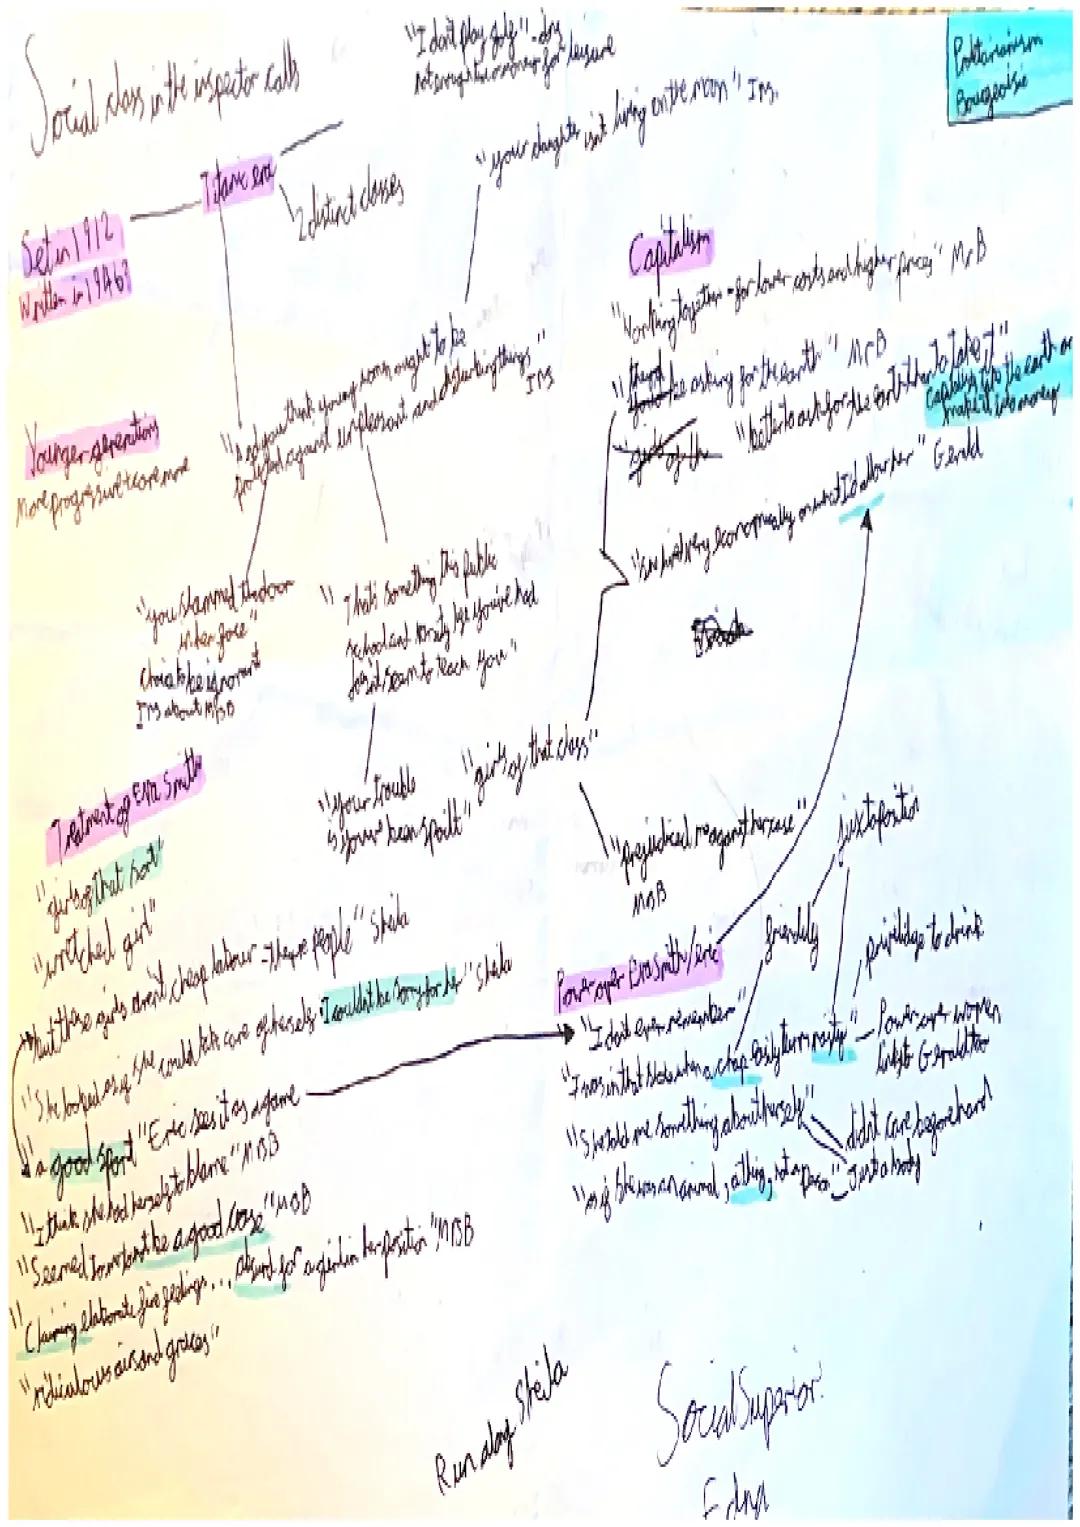 Social class in the inspector calls
"I don't play golf" - Ins
Not enough time or money for leisure
Proletarianism
Bougeoisie
"your daughter isn't living on the moon" Ins.
Titanic era
2 distinct classes
Set in 1912
Written in 1946?
Younger generations
more progressive + care more
"And you think young women ought to be
protected against unpleasant and disturbing things"
Ins
"you slammed the door
in her face"
Choice to be ignorant
Ins about MsB
"That's something this public
school and varsity life you've had
doesn't seem to teach you"
"your trouble
is you've been spoilt"
"girls of that class"
"prejudiced me against her case"
MsB
Capitalism
"Working together - for lower costs and higher prices" Mr B
"they'd be asking for the earth" Mr B
"better to ask for the earth than to take it"
Capitalists take the earth and
make it into money
"girls of the
"she lived very economically on what I'd allow her" Gerald
Treatment of Eva Smith
"girls of that sort"
"wretched girl"
"but these girls aren't cheap labour - they're people" Sheila
"She looked as if she could take care of herself. I couldn't be sorry for her" Sheila
"a good sport" Eric sees it as a game
"I think she had herself to blame" MSB
"Seemed to me to not be a good case" MSB
"Claiming elaborate fine feelings... absurd for a girl in her position" MSB
"ridiculous airs and graces"
Power over Eva Smith/eric
"I don't even remember"
"I was in that state when a chap easily turns nasty"
friendly
juxtaposition
privilidge to drink
Power over women
links to Gerald too
"She told me something about herself"
didn't care beforehand
"as if she was an animal, a thing, not a person"
Just a body
Run along Sheila
Social Superior!
Edna